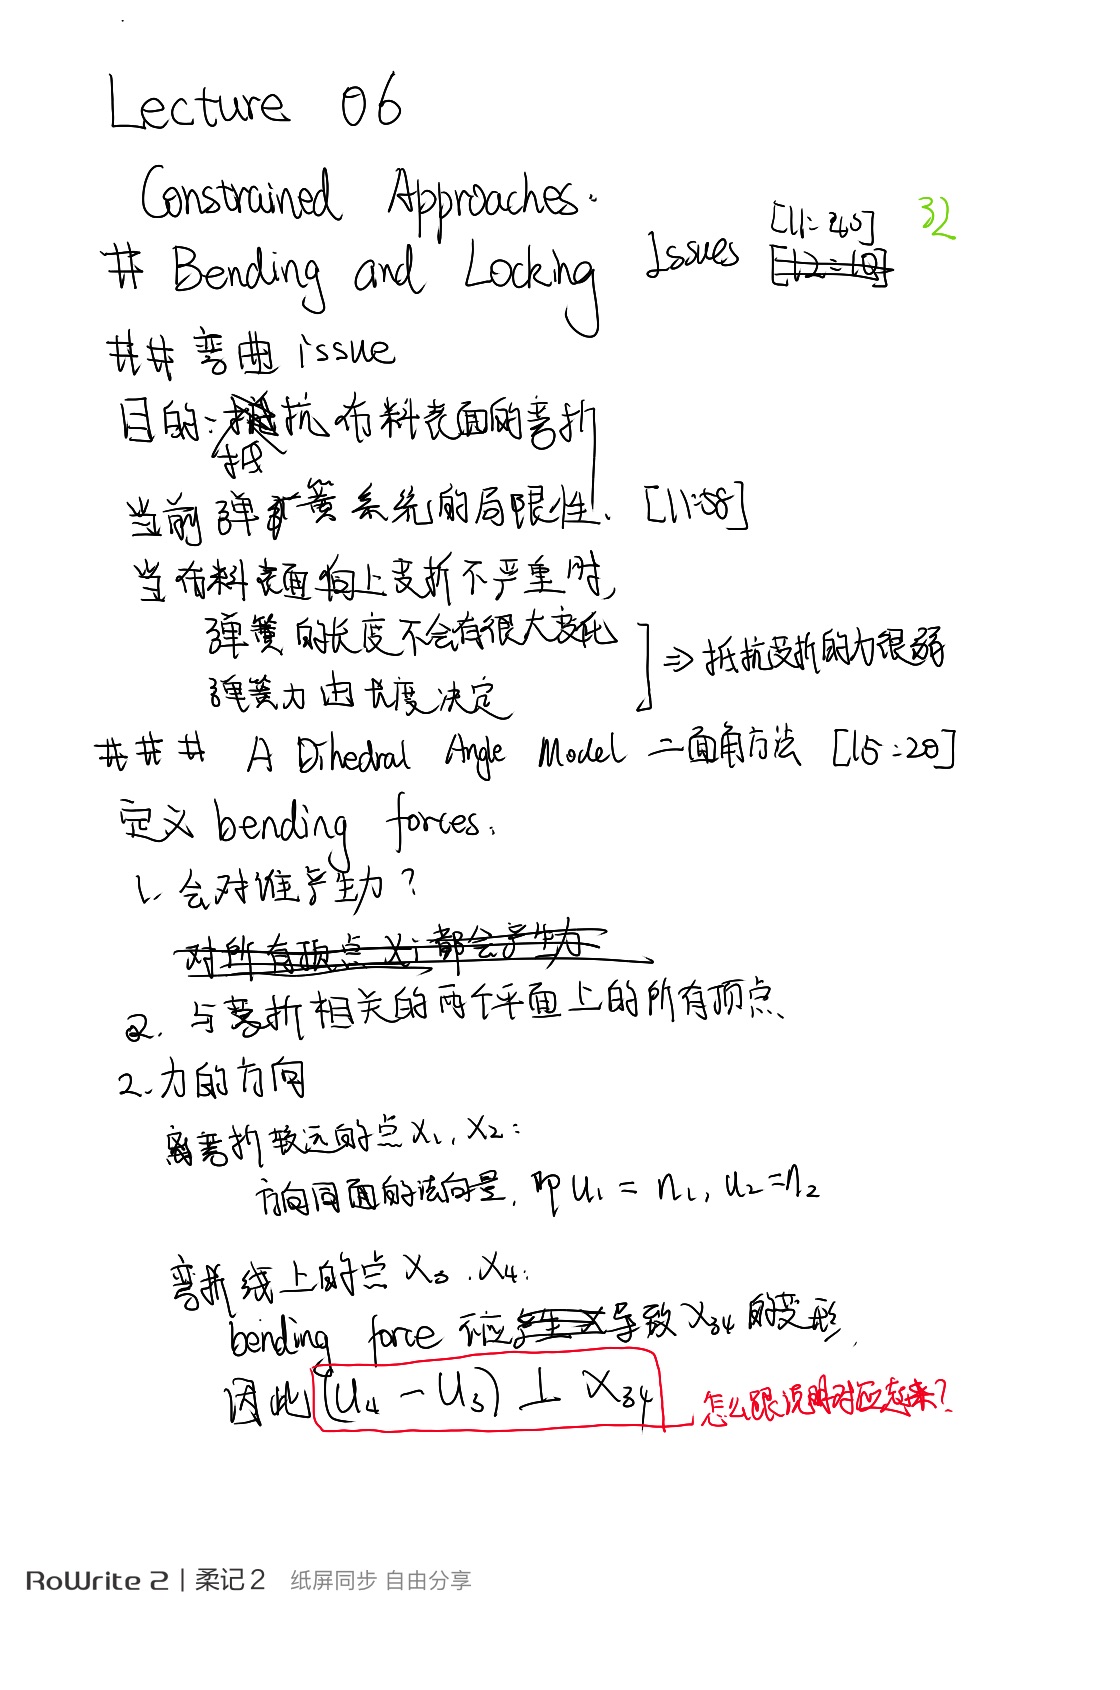 Lecture 06
Constrained Approaches.
# Bending and Locking Issues [11:26] 32
## 弯曲 issue
目的: 抵抗布料表面的弯折
当前弹簧系统的局限性. [11:58]
当布料表面向上弯折不严重时,
弹簧的长度不会有很大变化
弹簧力由长度决定
⇒ 抵抗弯折的力很弱
### A Dihedral Angle Model 二面角方法 [15:20]
定义 bending forces.
1. 会对谁产生力?
对所有顶点 Xi 都会产生力
2. 与弯折相关的两个平面上的所有顶点、
2. 力的方向
离弯折较远的点 X1, X2:
方向同面的法向量, 即 u1 = n1, u2 = n2
弯折线上的点 X3, X4:
bending force 不应产生X导致 X34 的变形.
因此 (U4 - U3) ⊥ X34 怎么跟说明对应起来?
RoWrite 2 | 柔记2 纸屏同步 自由分享